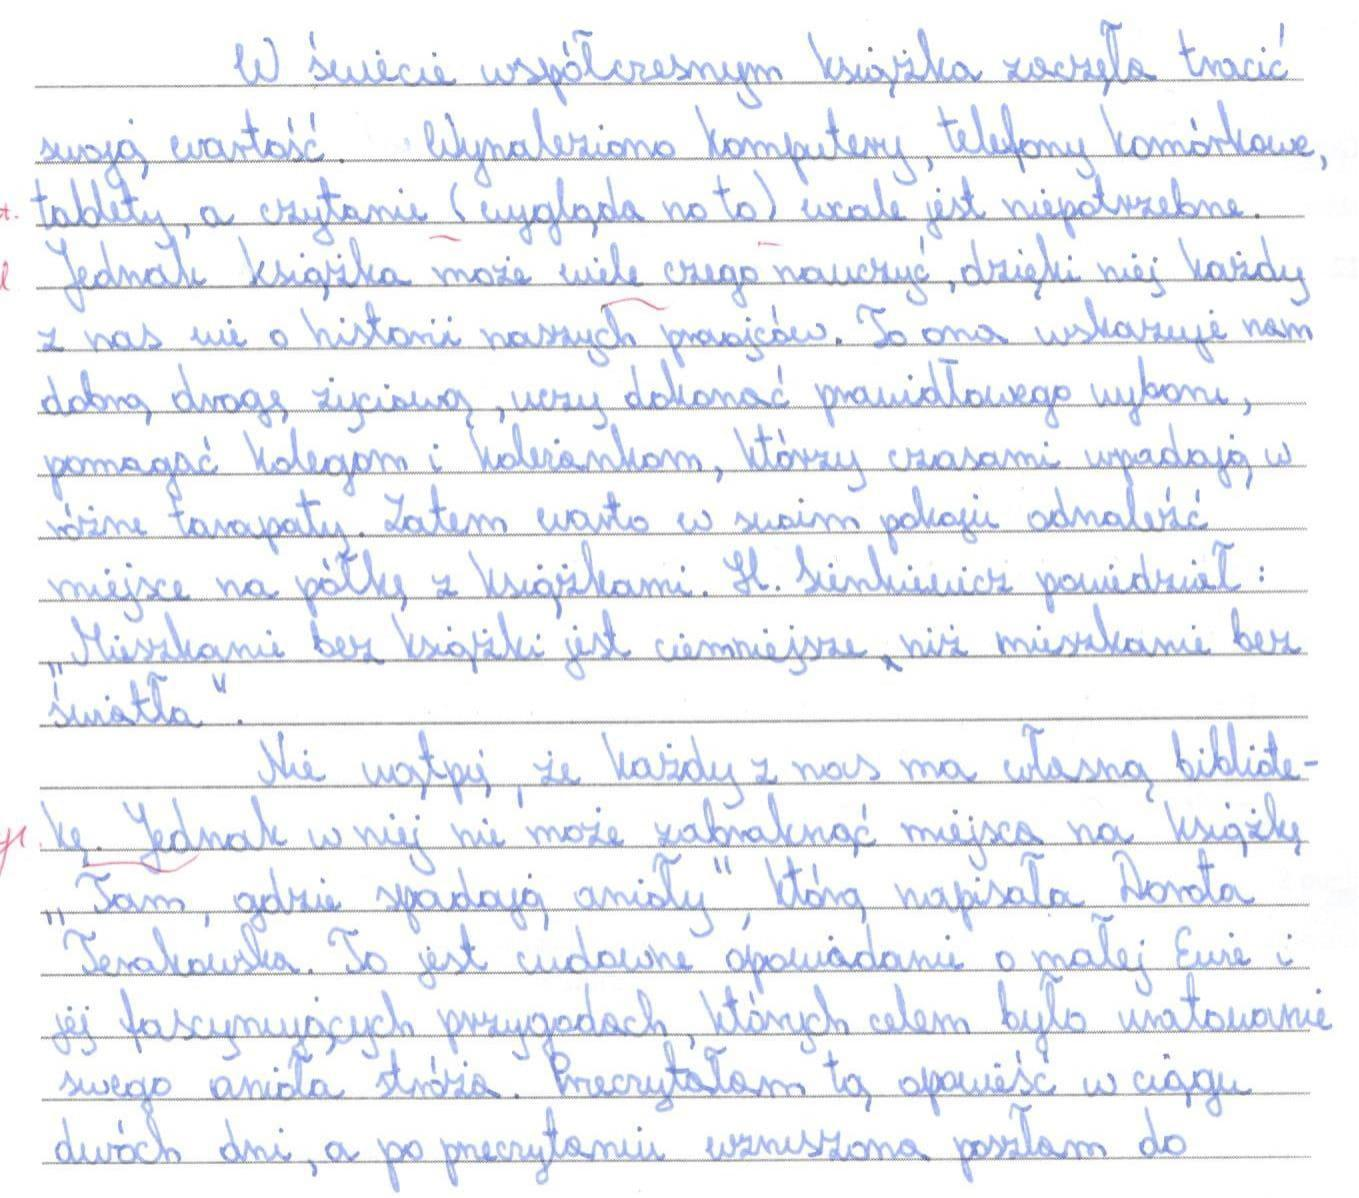 W świecie współczesnym książka zaczęła tracić
swoją wartość. Wynaleziono komputery, telefony komórkowe,
tablety, a czytanie (wygląda na to) wcale jest niepotrzebne.
Jednak książka może wiele czego nauczyć, dzięki niej każdy
z nas wie o historii naszych praojców. To ona wskazuje nam
dobrą drogę życiową, uczy dokonać prawidłowego wyboru,
pomagać kolegom i koleżankom, którzy czasami wpadają w
różne tarapaty. Zatem warto w swoim pokoju odnaleźć
miejsce na półkę z książkami. H. Sienkiewicz powiedział:
„Mieszkanie bez książki jest ciemniejsze, niż mieszkanie bez
światła".
Nie wątpię, że każdy z nas ma własną bibliote-
kę. Jednak w niej nie może zabraknąć miejsca na książkę
„Tam, gdzie spadają anioły", którą napisała Dorota
Terakowska. To jest cudowne opowiadanie o małej Ewie i
jej fascynujących przygodach, których celem było uratowanie
swego anioła stróża. Przeczytałam tą opowieść w ciągu
dwóch dni, a po przeczytaniu wzruszona poszłam do